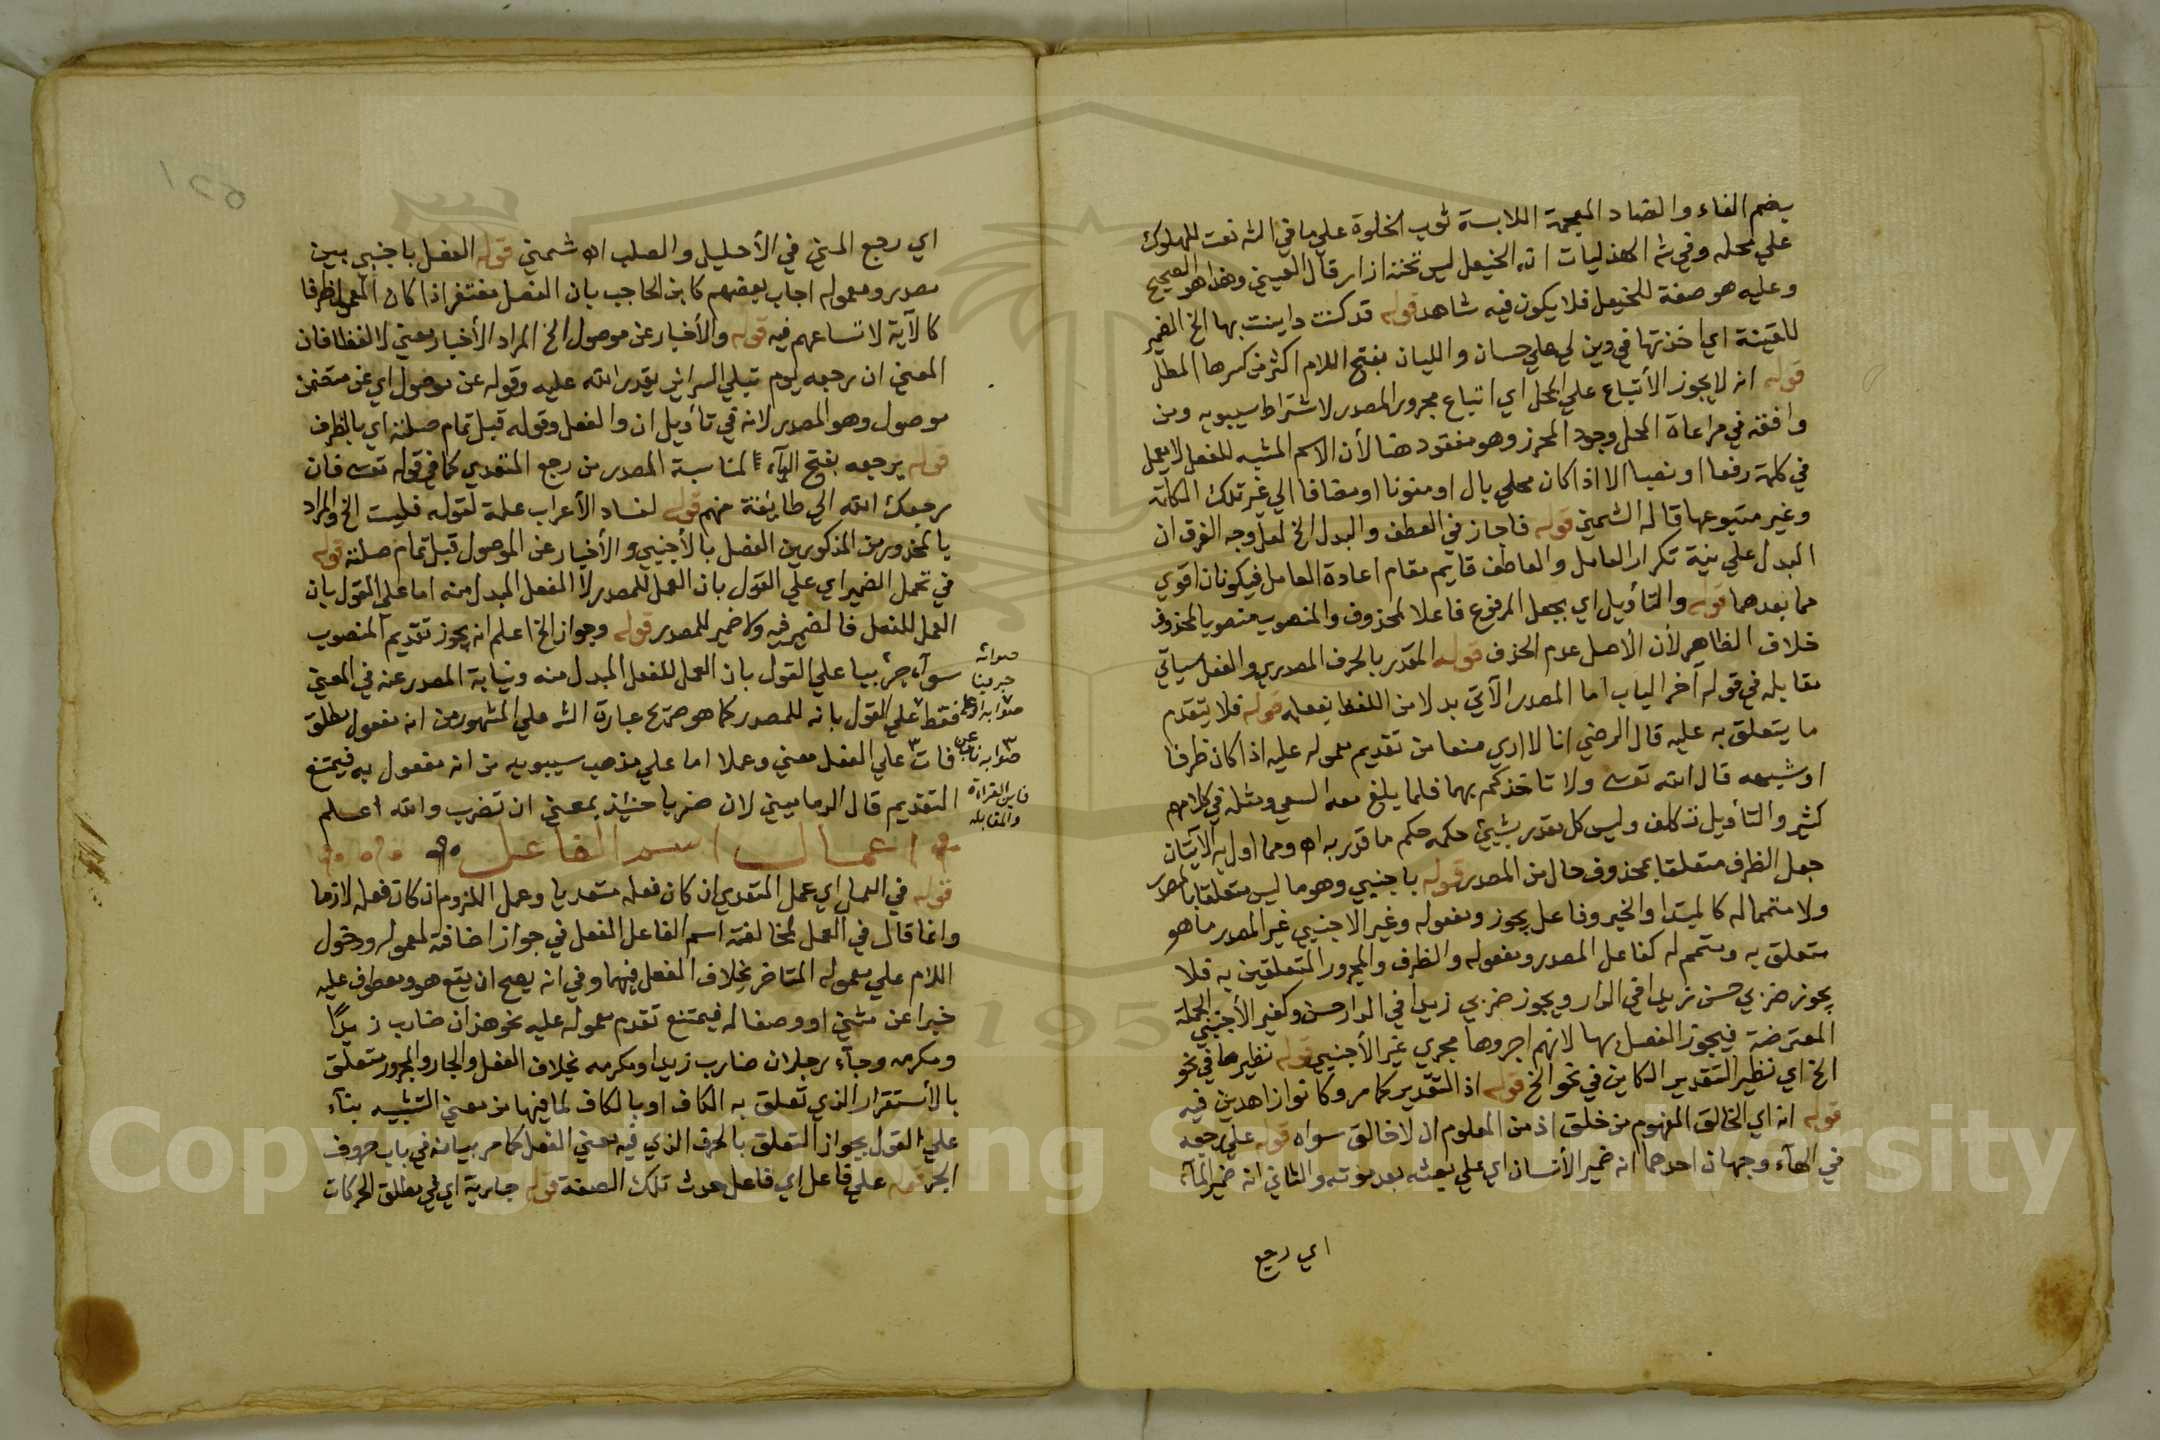 بضم الفاء والضاد المعجمة اللابسة ثوب الخلوة علي ما في الشه نعت للهلوك
علي محله وفي شه الهذليات انه الخيعل ليس تحته ازار قال العيني وهذا هو الصحيح
وعليه هو صفة للخيعل فلا يكون فيه شاهد قوله قد كنت داينت بها الخ الضمير
للقينة اي اخذتها في دين لي علي حسان والليان بفتح اللام اكثر من كسرها المطل
قوله انه لا يجوز الأتباع علي المحل اي اتباع مجرور المصدر لاشتراط سيبويه ومن
وافقه في مراعاة المحل وجود المحرز وهو مفقود هنا لأن الاسم المشبه للفعل لا يعمل
في كلمة رفعا او نصبا الا اذا كان محلي بال او منونا او مضافا الي غير تلك الكلمة
وغير متبوعها قاله الشمني قوله فاجاز في العطف والبدل الخ لعل وجه الفرق ان
البدل علي نية تكرار العامل والعاطف قايم مقام اعادة العامل فيكونان اقوي
مما بعدهما قوله والتأويل اي بجعل المرفوع فاعلا لمحذوف والمنصوب منصوبا لمحذوف
خلاف الظاهر لأن الأصل عدم الحذف قوله المقدر بالحرف المصدري والفعل سياتي
مقابله في قوله آخر الباب اما المصدر الآتي بدلا من اللفظ بفعله قوله فلا يتقدم
ما يتعلق به عليه قال الرضي انا لا اري منعا من تقديم معموله عليه اذا كان ظرفا
او شبهه قال الله تعه ولا تاخذكم بهما فلما بلغ معه السعي ومثله في كلامهم
كثير والتأويل تكلف وليس كل مقدر بشيئ حكمه حكم ما قدر به اه ومما اول به الآيتان
جعل الظرف متعلقا بمحذوف حال من المصدر قوله باجنبي وهو ما ليس متعلقا بالمصدر
ولا متمما له كالمبتدا والخبر وفاعل يجوز ومفعوله وغير الاجنبي غير المصدر ما هو
متعلق به ومتمم له كفاعل المصدر ومفعوله والظرف والمجرور المتعلقين به فلا
يجوز ضربي حسن زيدا في الدار ويجوز ضربي زيدا في الدار حسن وكغير الأجنبي الجملة
المعترضة فيجوز الفصل بها لانهم اجروها مجري غير الأجنبي قوله نظيرها في نحو
الخ اي نظير التقدير الكاين في نحو الخ قوله اذ التقدير كما مر وكانوا زاهدين فيه
قوله انه اي الخالق المفهوم من خلق اذ من المعلوم ان لا خالق سواه قوله علي رجعه
في الهآء وجهان احدهما انه ضمير الأنسان اي علي بعثه بعد موته والثاني انه ضمير المآء
اي رجع
اي رجع المني في الأحليل والصلب اه شمني قوله الفصل باجنبي بين
مصدر ومعموله اجاب بعضهم كابن الحاجب بان الفصل مغتفر اذا كان المعمول ظرفا
كالآية لاتساعهم فيه قوله والأخبار عن موصول الخ المراد الأخبار معني لا لفظا فان
المعني ان رجعه يوم تبلي السرائر يقدر الله عليه وقوله عن موصول اي عن متضمن
موصول وهو المصدر لانه في تأويل ان والفعل وقوله قبل تمام صلته اي بالظرف
قوله يرجعه بفتح اليآء لمناسبة المصدر من رجع المتعدي كما في قوله تعه فان
رجعك الله الي طائفة منهم قوله لفساد الأعراب علة لقوله فليست الخ والمراد
بالمحذورين المذكورين الفصل بالأجنبي والأخبار عن الموصول قبل تمام صلته قوله
في تحمل الضمير اي علي القول بان العمل للمصدر لا المفعل المبدل منه اما علي القول بان
العمل للفعل فالضمير فيه ولا ضمير للمصدر قوله وجواز الخ اعلم انه يجوز تقديم المنصوب
سوآء جربيا علي القول بان العمل للفعل المبدل منه ونيابة المصدر عنه في المعني
فقط علي القول بانه للمصدر كما هو صريح عبارة الشه علي المشهور من انه مفعول مطلق
فات علي الفعل معني وعملا اما علي مذهب سيبويه من انه مفعول به فيمتنع
التقديم قال الدماميني لان ضربا حينئذ بمعني ان تضرب والله اعلم
اعمال اسم الفاعل
قوله في العمل اي عمل المتعدي ان كان فعله متعديا وعمل اللزوم ان كان فعله لازما
وانما قال في العمل لمخالفة اسم الفاعل الفعل في جواز اضافة لمعموله ودخول
اللام علي معموله المتاخر بخلاف الفعل فيهما وفي انه يصح ان يقع هو ومعطوف عليه
خبرا عن مثني او وصفا له فيمتنع تقدم معموله عليه نحو هذان ضارب زيدًا
ومكرمه وجآء رجلان ضارب زيدا ومكرمه بخلاف الفعل والجار والمجرور متعلق
بالأستقرار الذي تعلق به الكاف او بالكاف لما فيها من معني التشبيه بنآء
علي القول بجواز التعلق بالحرف الذي فيه معني الفعل كما مر بيانه في باب حروف
الجر قوله علي فاعل اي فاعل حدث تلك الصفة قوله جارية اي في مطلق الحركات
صوابه
جرينا
صوابه او علي
صوابه نائب عن
قابل القراءة
والمقابلة